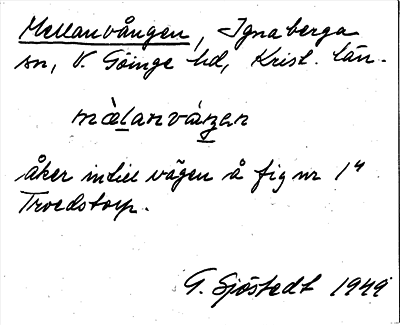 Mellanvången, Ignaberga
sn, V. Göinge hd, Krist. län.
mὰlanvάŋan
åker intill vägen å fig nr 1⁴
Troedstorp.
G. Sjöstedt 1949